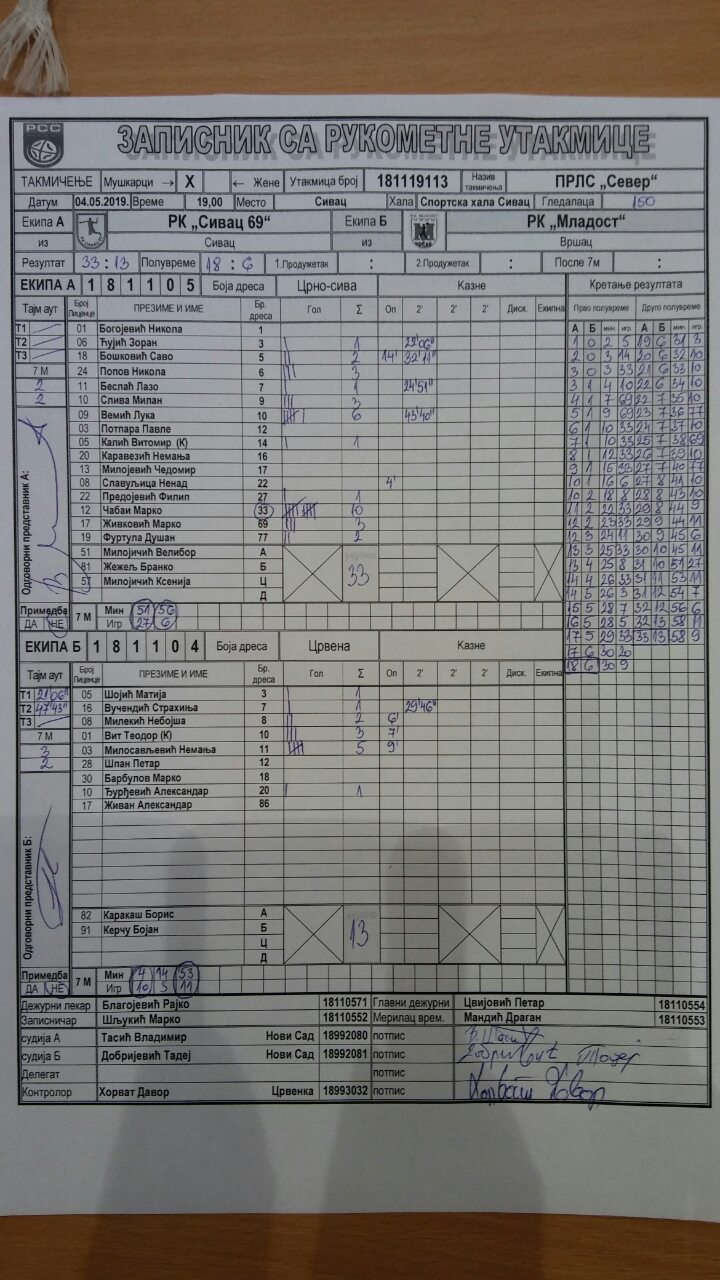 РСС
ЗАПИСНИК СА РУКОМЕТНЕ УТАКМИЦЕ
ТАКМИЧЕЊЕ Мушкарци → X ← Жене Утакмица број 181119113 Назив такмичења ПРЛС „Север“
Датум 04.05.2019. Време 19,00 Место Сивац Хала Спортска хала Сивац Гледалаца 150
Екипа А РК „Сивац 69“ Екипа Б РК „Младост“
из Сивац из Вршац
Резултат 33 : 13 Полувреме 18 : 6 1.Продужетак : 2.Продужетак : После 7м :
ЕКИПА А 1 8 1 1 0 5 Боја дреса Црно-сива Казне Кретање резултата
Тајм аут Број Лиценце ПРЕЗИМЕ И ИМЕ Бр. дреса Гол Σ Оп 2' 2' 2' Диск. Екипна Прво полувреме Друго полувреме
А Б мин. игр. А Б мин. игр.
Т1 01 Богојевић Никола 1
Т2 06 Ћујић Зоран 3 1 22'06"
Т3 18 Бошковић Саво 5 2 14' 32'11"
7 М 24 Попов Никола 6 3
2 11 Беслаћ Лазо 7 1 24'51"
2 10 Слива Милан 9 3
09 Вемић Лука 10 6 43'40"
03 Потпара Павле 12
05 Калић Витомир (К) 14 1
20 Каравезић Немања 16
13 Милојевић Чедомир 17
08 Славуљица Ненад 22 4'
22 Предојевић Филип 27 1
12 Чабаи Марко 33 10
17 Живковић Марко 69 3
19 Фуртула Душан 77 2
51 Милојичић Велибор А
81 Жежељ Бранко Б
57 Милојичић Ксенија Ц
Д
33
Одговорни представник А:
1 0 2 5 19 6 31 3
2 0 3 14 20 6 32 10
3 0 3 33 21 6 33 10
3 1 4 10 22 6 34 10
4 1 7 69 22 7 35 10
5 1 9 69 23 7 36 77
6 1 10 33 24 7 37 10
7 1 10 33 25 7 38 69
8 1 12 33 26 7 39 10
9 1 15 33 27 7 40 77
10 1 16 6 27 8 41 10
10 2 18 8 28 8 43 10
11 2 22 33 29 8 44 9
12 2 23 33 29 9 44 11
12 3 24 11 30 9 45 6
13 3 25 33 30 10 45 11
13 4 25 8 31 10 51 27
14 4 26 33 31 11 53 11
14 5 26 3 31 12 54 7
15 5 28 7 32 12 56 6
16 5 28 5 32 13 58 11
17 5 29 33 33 13 58 9
17 6 30 20
18 6 30 9
Примедба 7 М Мин 51 56
ДА НЕ Игр 27 6
ЕКИПА Б 1 8 1 1 0 4 Боја дреса Црвена Казне
Тајм аут Број Лиценце ПРЕЗИМЕ И ИМЕ Бр. дреса Гол Σ Оп 2' 2' 2' Диск. Екипна
Т1 21'06" 05 Шојић Матија 3 1
Т2 47'43" 16 Вучендић Страхиња 7 1 29'46"
Т3 08 Милекић Небојша 8 2 6'
7 М 01 Вит Теодор (К) 10 3 7'
3 03 Милосављевић Немања 11 5 9'
2 28 Шпан Петар 12
30 Барбулов Марко 18
10 Ђурђевић Александар 20 1
17 Живан Александар 86
82 Каракаш Борис А
91 Керчу Бојан Б
Ц
Д
13
Одговорни представник Б:
Примедба 7 М Мин 4 14 53
ДА НЕ Игр 10 3 11
Дежурни лекар Благојевић Рајко 18110571 Главни дежурни Цвијовић Петар 18110554
Записничар Шљукић Марко 18110552 Мерилац врем. Мандић Драган 18110553
судија А Тасић Владимир Нови Сад 18992080 потпис
судија Б Добријевић Тадеј Нови Сад 18992081 потпис Добријевић Тадеј
Делегат потпис
Контролор Хорват Давор Црвенка 18993032 потпис Хорват Давор